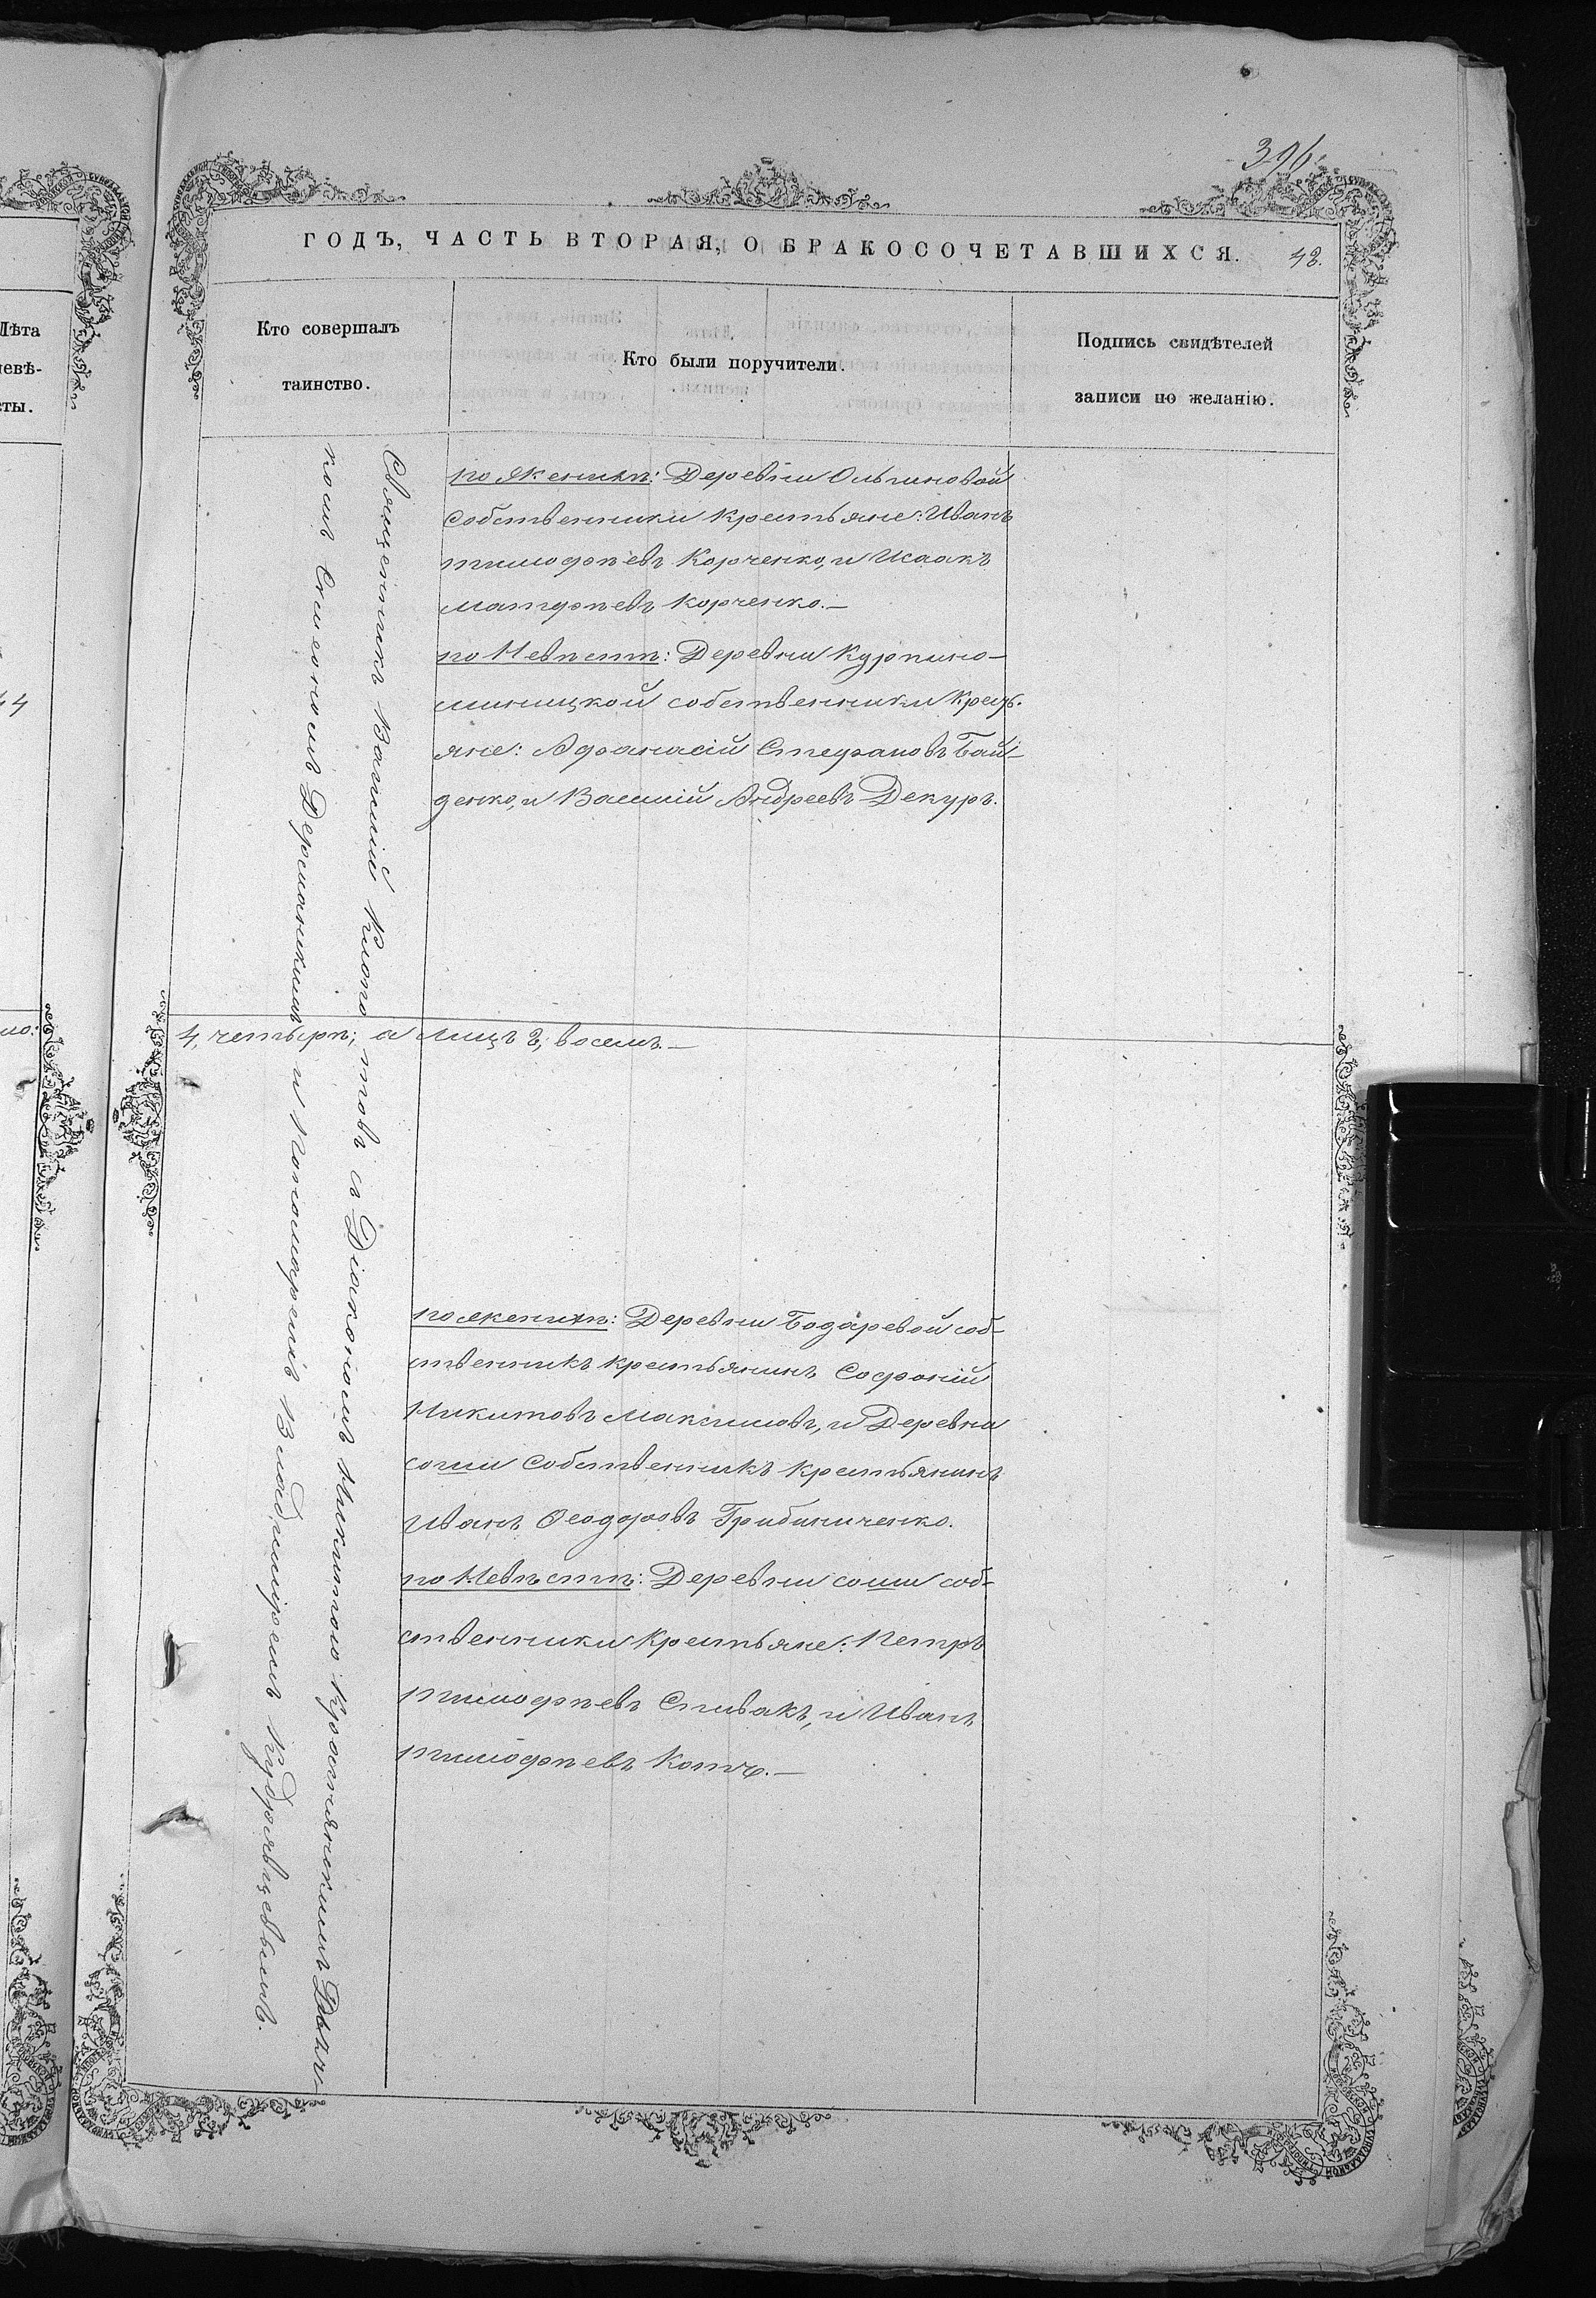 396.
ГОДЪ, ЧАСТЬ ВТОРАЯ, О БРАКОСОЧЕТАВШИХСЯ.
48.
Лѣта
невѣ-
сты.
Кто совершалъ
таинство.
Кто были поручители.
Подпись свидѣтелей
записи по желанію.
Священникъ Василій Клопотовъ съ Діакономъ Никитою Крастянскимъ Дьяч-
комъ Симеономъ Держанкимъ и Пономаремъ Владиміромъ Кудрявцевымъ.
по Женихѣ: Деревни Ольгиновой
собственники крестьяне: Иванъ
Тимофѣевъ Корченко, и Исаакъ
Матфѣевъ Корченко.—
по Невѣстѣ: Деревни Курпино-
собственники Кресть.
яне: Афанасій Стефановъ Бай-
денко, и Василій Андреевъ Декуръ.
4, четыре; а лицъ 8, восемь.—
по женихѣ: Деревни Бодаревой соб-
ственникъ крестьянинъ Софоній
Никитовъ Максимовъ, и Деревни
сошки собственникъ крестьянинъ
Иванъ Ѳеодоровъ Грибиниченко.
по Невѣстѣ: Деревни сошки соб-
ственники Крестьяне: Петръ
Тимофѣевъ Спивакъ, и Иванъ
Тимофѣевъ